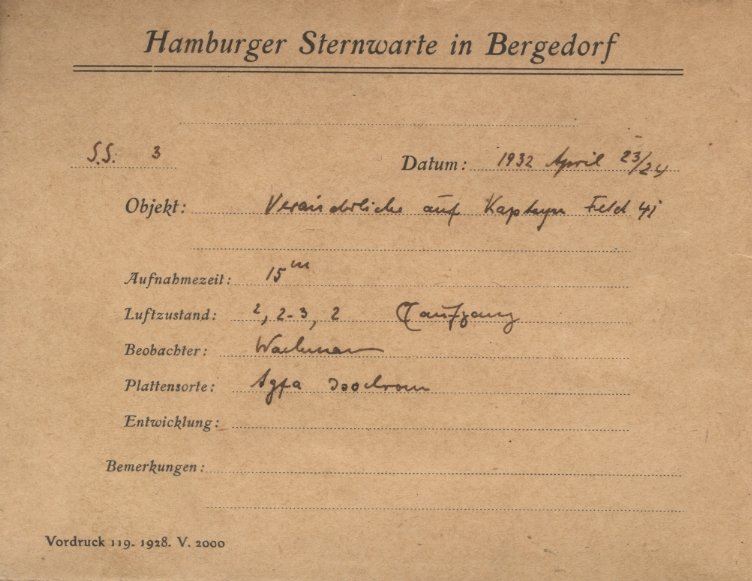 Hamburger Sternwarte in Bergedorf
S.S. 3 Datum: 1932 April 23/24
Objekt: Veränderliche auf Kapteyn Feld 41
Aufnahmezeit: 15ᵐ
Luftzustand: 2, 2-3, 2 ☾aufgang
Beobachter: Wachmann
Plattensorte: Agfa Isochrom
Entwicklung:
Bemerkungen:
Vordruck 119. 1928. V. 2000